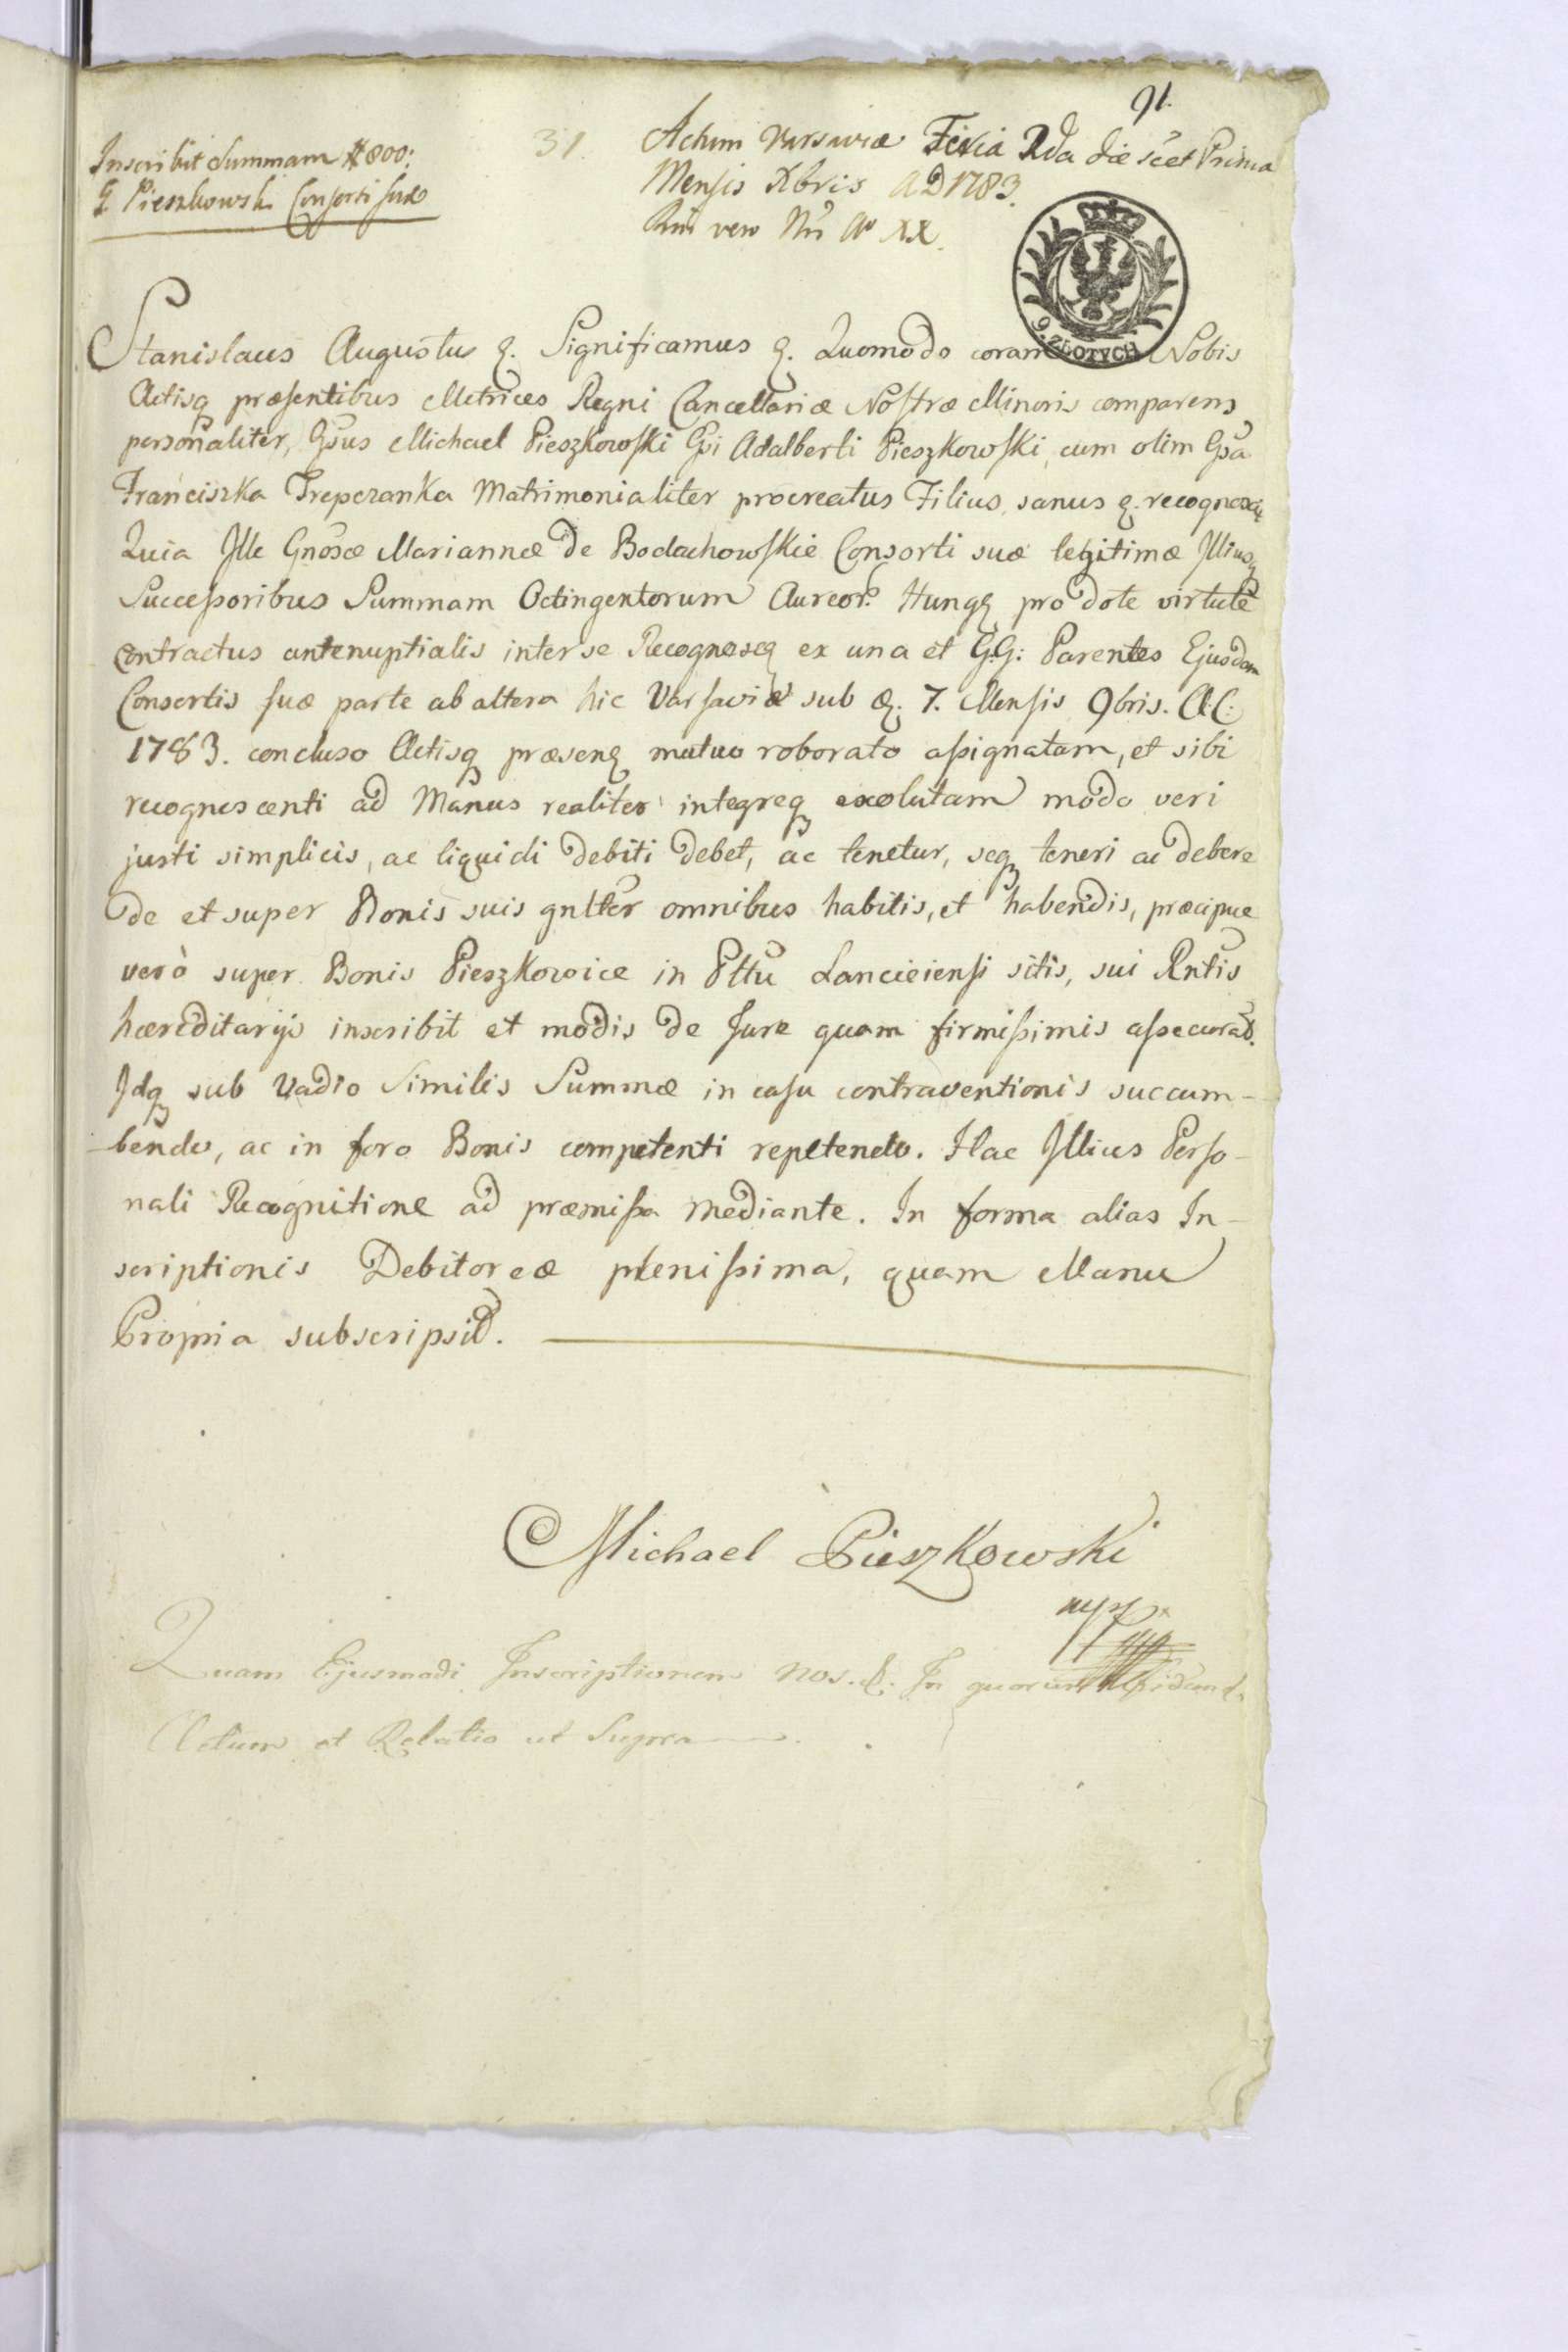 91.
Inscribit Summam # 800:
G. Pieszkowski Consorti suæ
31.
Actum Varsaviæ Feria 2da die scet Prima
Mensis Xbris AD 1783.
Rni vero Nri Ao XX.
9. ZŁOTYCH
Stanislaus Augustus &. Significamus &. Quomodo coram Nobis
Actisq præsentibus Metrices Regni Cancellariæ Nostræ Minoris comparens
personaliter, Gsus Michael Pieszkowski Gsi Adalberti Pieszkowski, cum olim Gsa
Franciszka Trepczanka Matrimonialiter procreatus Filius, sanus &. recognoscit
Quia Ille Gnosæ Mariannæ de Bodachowskie Consorti suæ legitimæ Illiusq
Successoribus Summam Octingentorum Aureor. Hung. pro dote virtute
Contractus antenuptialis inter se Recognoscq ex una et G.G: Parentes Ejusdem
Consortis suæ parte ab altera hic Varsaviæ sub &. 7. Mensis 9bris. A.C:
1783. concluso Actisq præsenq mutuo roborato assignatam, et sibi
recognoscenti ad Manus realiter integreq exolutam modo veri
justi simplicis, ac liquidi Debiti debet, ac tenetur, seq teneri ac debere
de et super Bonis suis gnltèr omnibus habitis, et habendis, præcipue
verò super Bonis Pieszkowice in Pttu Lanciciensi sitis, sui Rntis
hæreditarijs inscribit et modis de Jure quam firmissimis assecurat.
Idq sub Vadio Similis Summæ in casu contraventionis succum-
-bendo, ac in foro Bonis competenti repetendo. Hac Illius Perso-
nali Recognitione ad præmissa mediante. In forma alias In-
scriptionis Debitoreæ plenissima, quam Manu
Propria subscripsit.
Michael Pieszkowski
mpp
Quam Ejusmodi Inscriptionem nos. &. In quorum fidem &.
Actum et Relatio ut Supra